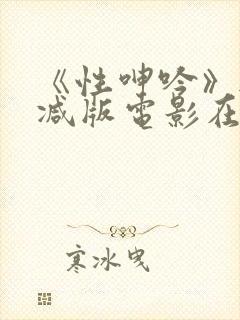 《性呻吟》
减版电影在
寒冰曳